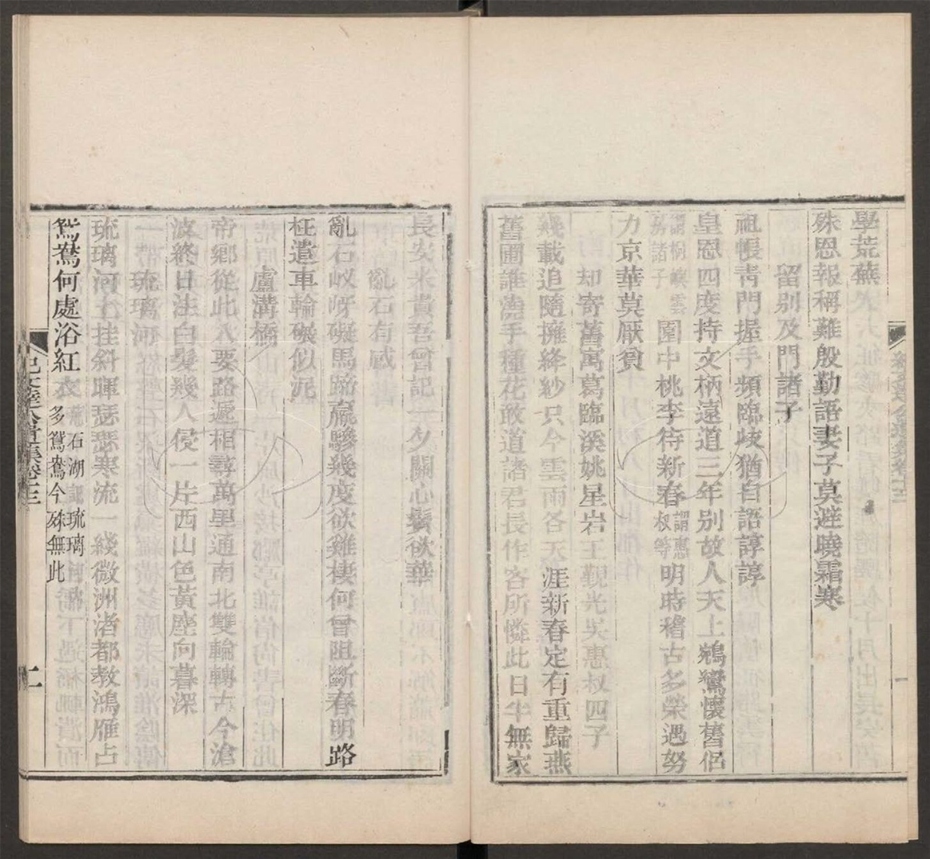 學荒蕪
殊恩報稱難殷勤語妻子莫避曉霜寒
留别及門諸子
祖帳靑門握手頻臨歧猶自語諄諄
皇恩四度持文柄遠道三年别故人天上鵷鸞懷舊侶
謂桐嶼雲
房諸子
園中桃李待新春
謂惠
叔等
明時稽古多榮遇努
力京華莫厭貧
却寄舊寓葛臨溪姚星岩王覲光吳惠叔四子
幾載追隨擁絳紗只今雲雨各天涯新春定有重歸燕
舊圃誰澆手種花敢道諸君長作客所憐此日半無家
長安米貴吾曾記一夕關心鬢欲華
亂石有感
亂石㟏岈礙馬蹄羸驂幾度欲雞棲何曾阻斷春明路
枉遣車輪碾似泥
盧溝橋
帝鄉從此入要路遞相尋萬里通南北雙輪轉古今滄
波終日注白髮幾人侵一片西山色黃塵向暮深
琉璃河
琉璃河上挂斜暉瑟瑟寒流一綫微洲渚都教鴻雁占
鴛鴦何處浴紅衣
石湖記琉璃河
多鴛鴦今殊無此
紀文達公遺集卷十三
二